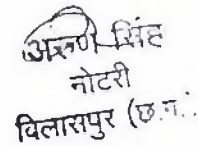 अरुण सिंह
नोटरी
विलासपुर (छ.ग.